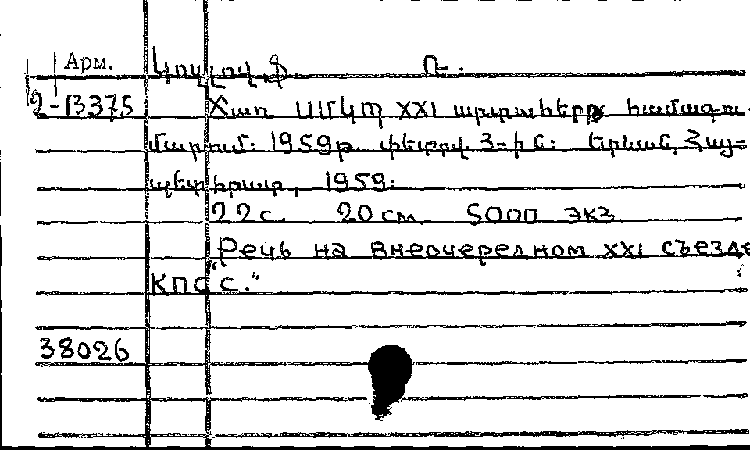 Арм. Կոզլով Ֆ. Ռ.
2-13375 Ճառ ՍՄԿՊ XXI արտահերթ համագու-
մարում: 1959թ. փետրվ. 3-ին: Երևան, Հայ-
պետհրատ, 1959:
22 с. 20 см. 5000 экз
"Речь на внеочередном XXI съезде
КПСС."
38026